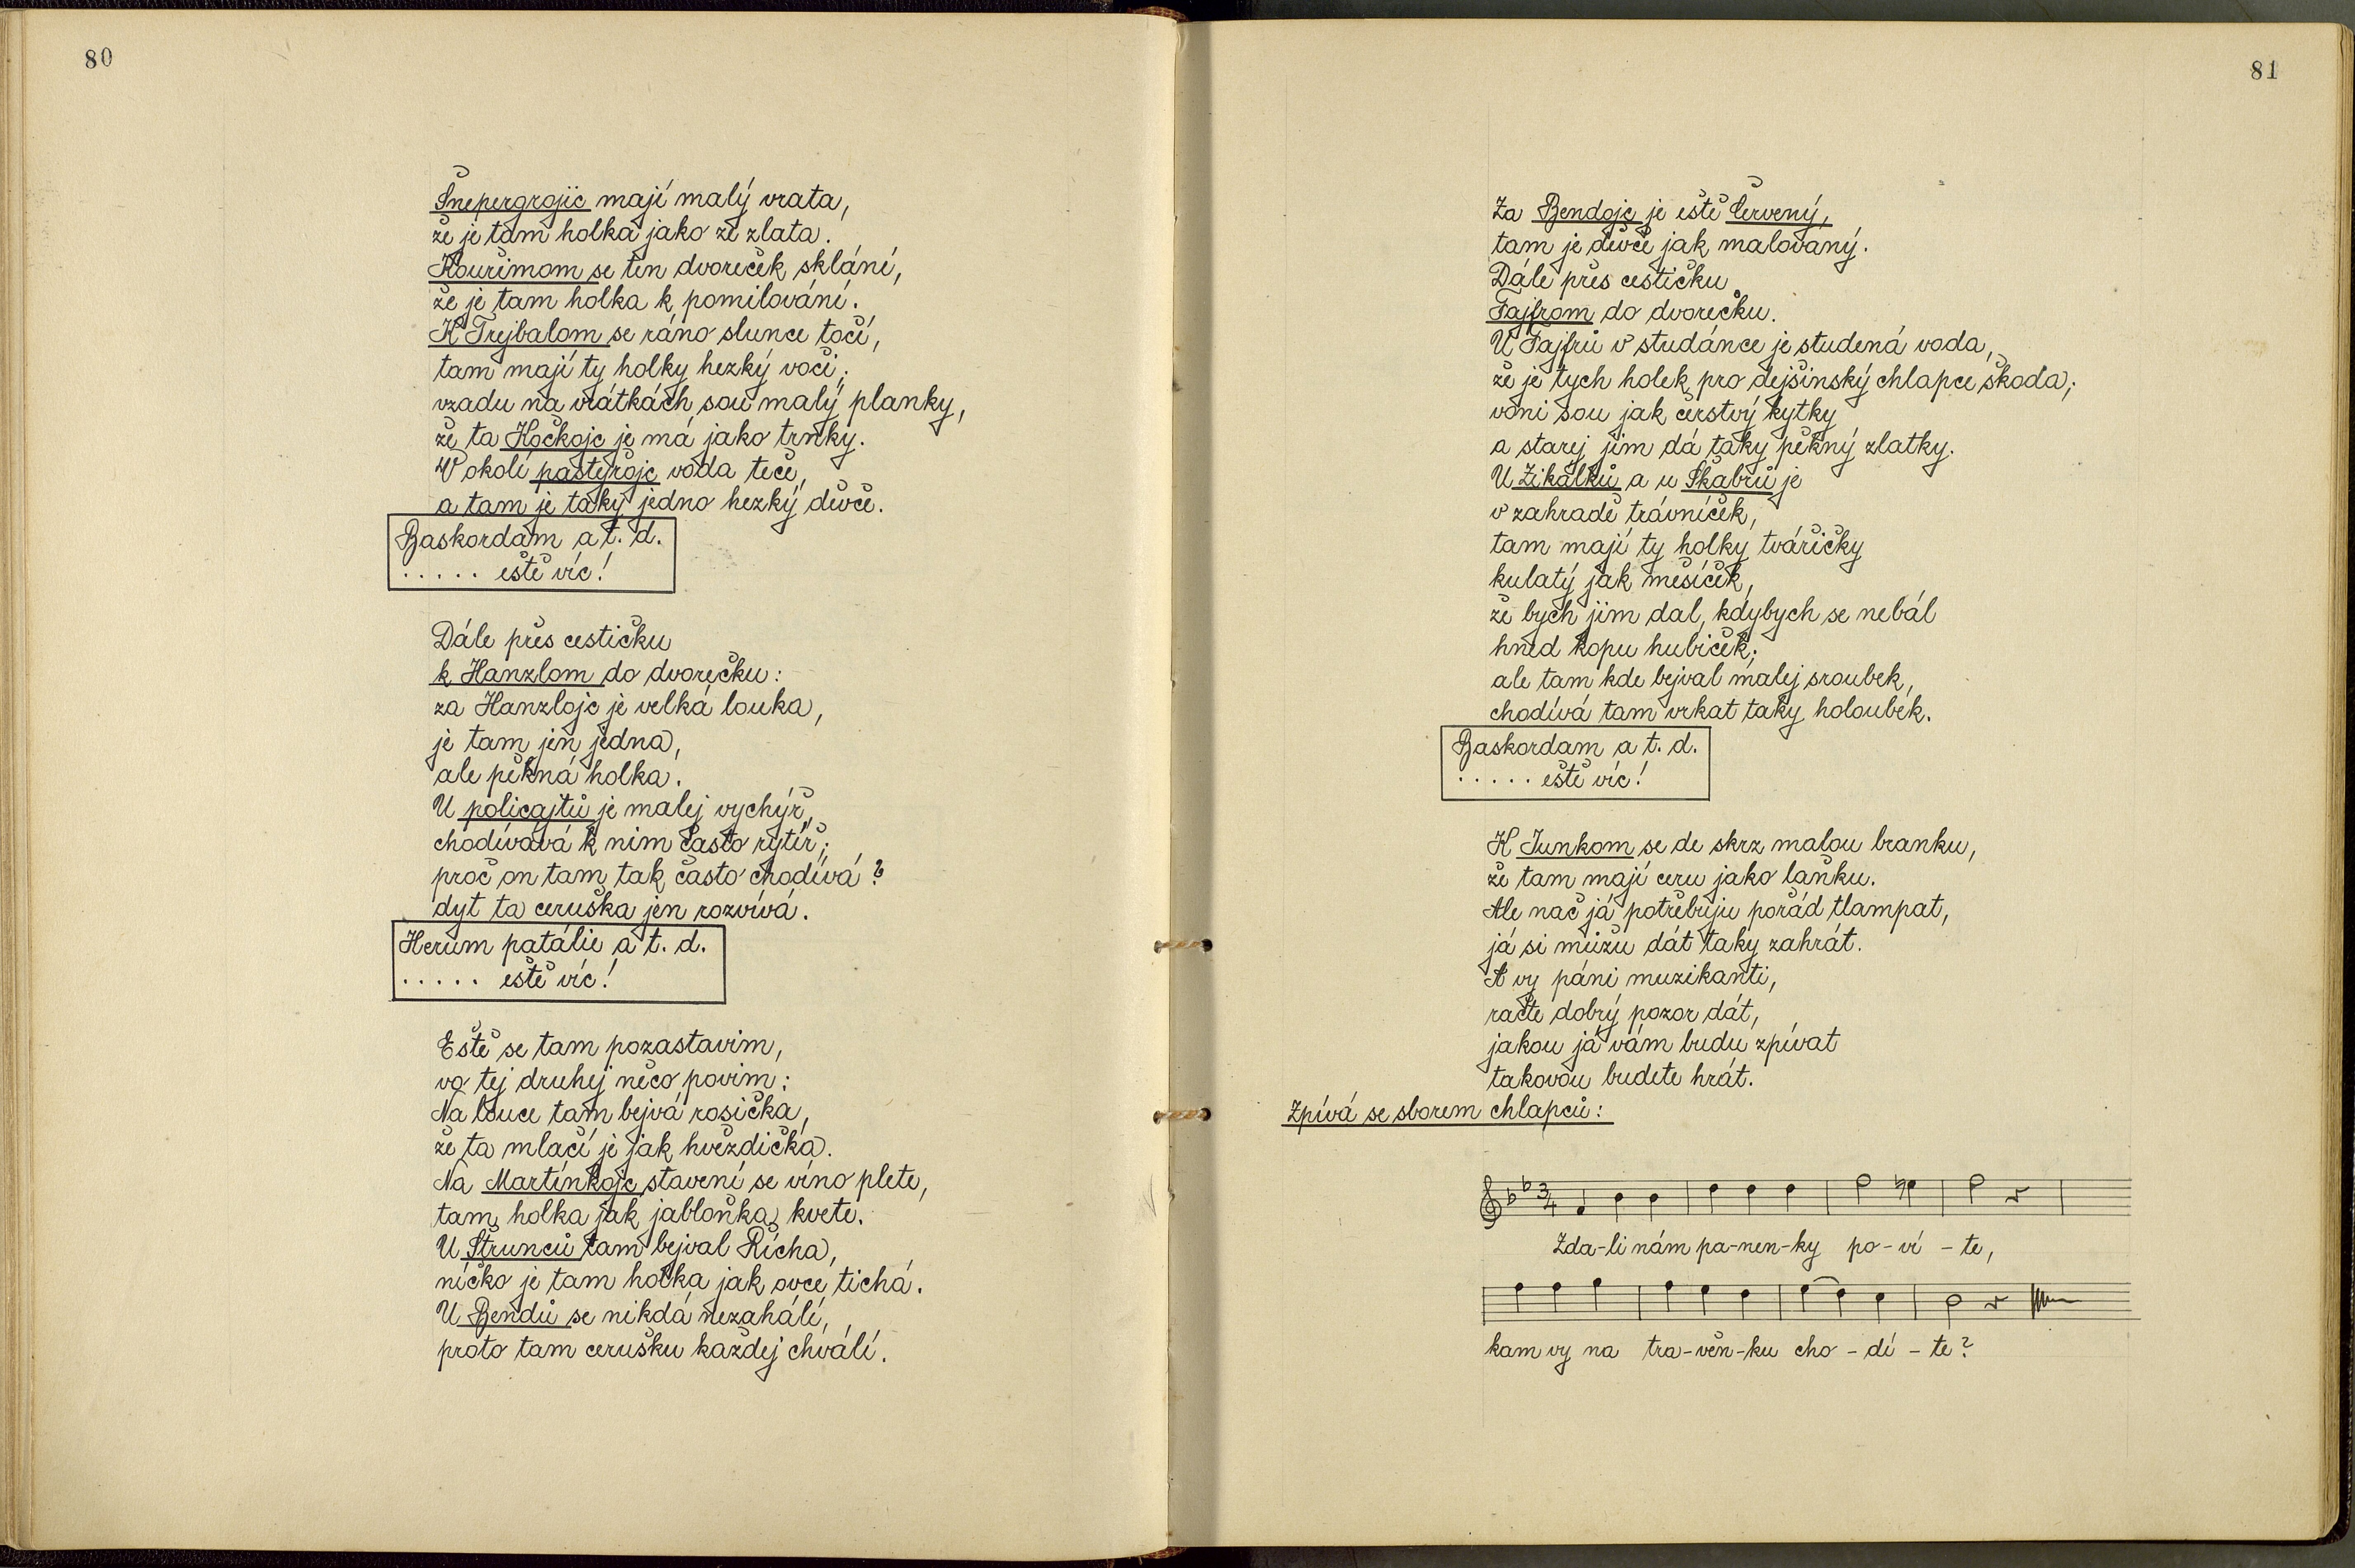 80
Šnepergrojic mají malý vrata,
že je tam holka jako ze zlata.
Kouřimom se ten dvoreček sklání,
že je tam holka k pomilování.
K Trejbalom se ráno slunce točí,
tam mají ty holky hezký voči;
vzadu na vrátkách sou malý planky,
že ta Kočkojc je má jako trnky.
V okolí pastýřojc voda teče,
a tam je taky jedno hezký děvče.
Baskordam a t. d.
..... eště víc!
Dále přes cestičku
k Hanzlom do dvorečku:
za Hanzlojc je velká louka,
je tam jen jedna,
ale pěkná holka.
U policajtů je malej vychýř,
chodívává k nim často rytíř;
proč on tam tak často chodívá?
dyt ta ceruška jen rozvívá.
Herum patálie a t. d.
..... eště víc!
Eště se tam pozastavim,
vo tej druhej něco povim:
Na louce tam bejvá rosička,
že ta mlačí je jak hvězdička.
Na Martínkojc stavení se víno plete,
tam holka jak jabloňka kvete.
U Štrunců tam bejval Řícha,
níčko je tam holka jak ovce tichá.
U Bendů se nikdá nezahálí,
proto tam cerušku každej chválí.
81
Za Bendojc je eště Červený,
tam je děvče jak malovaný.
Dále přes cestičku
Fajfrom do dvorečku.
U Fajfrů v studánce je studená voda,
že je tych holek pro dejšinský chlapce škoda;
voni sou jak čerstvý kytky
a starej jim dá taky pěkný zlatky.
U Zikálků a u Škabrů je
v zahradě trávníček,
tam mají ty holky tvářičky
kulatý jak měsíček,
že bych jim dal, kdybych se nebál
hned kopu hubiček;
ale tam kde bejval malej sroubek,
chodívá tam vrkat taky holoubek.
Baskordam a t. d.
..... eště víc!
K Junkom se de skrz malou branku,
že tam mají ceru jako laňku.
Ale nač já potřebuju pořád tlampat,
já si můžu dát taky zahrát.
A vy páni muzikanti,
račte dobrý pozor dát,
jakou já vám budu zpívat
takovou budete hrát.
Zpívá se sborem chlapců:
3/4
Zda-li nám pa-nen-ky po-ví-te,
kam vy na tra-věn-ku cho-dí-te?